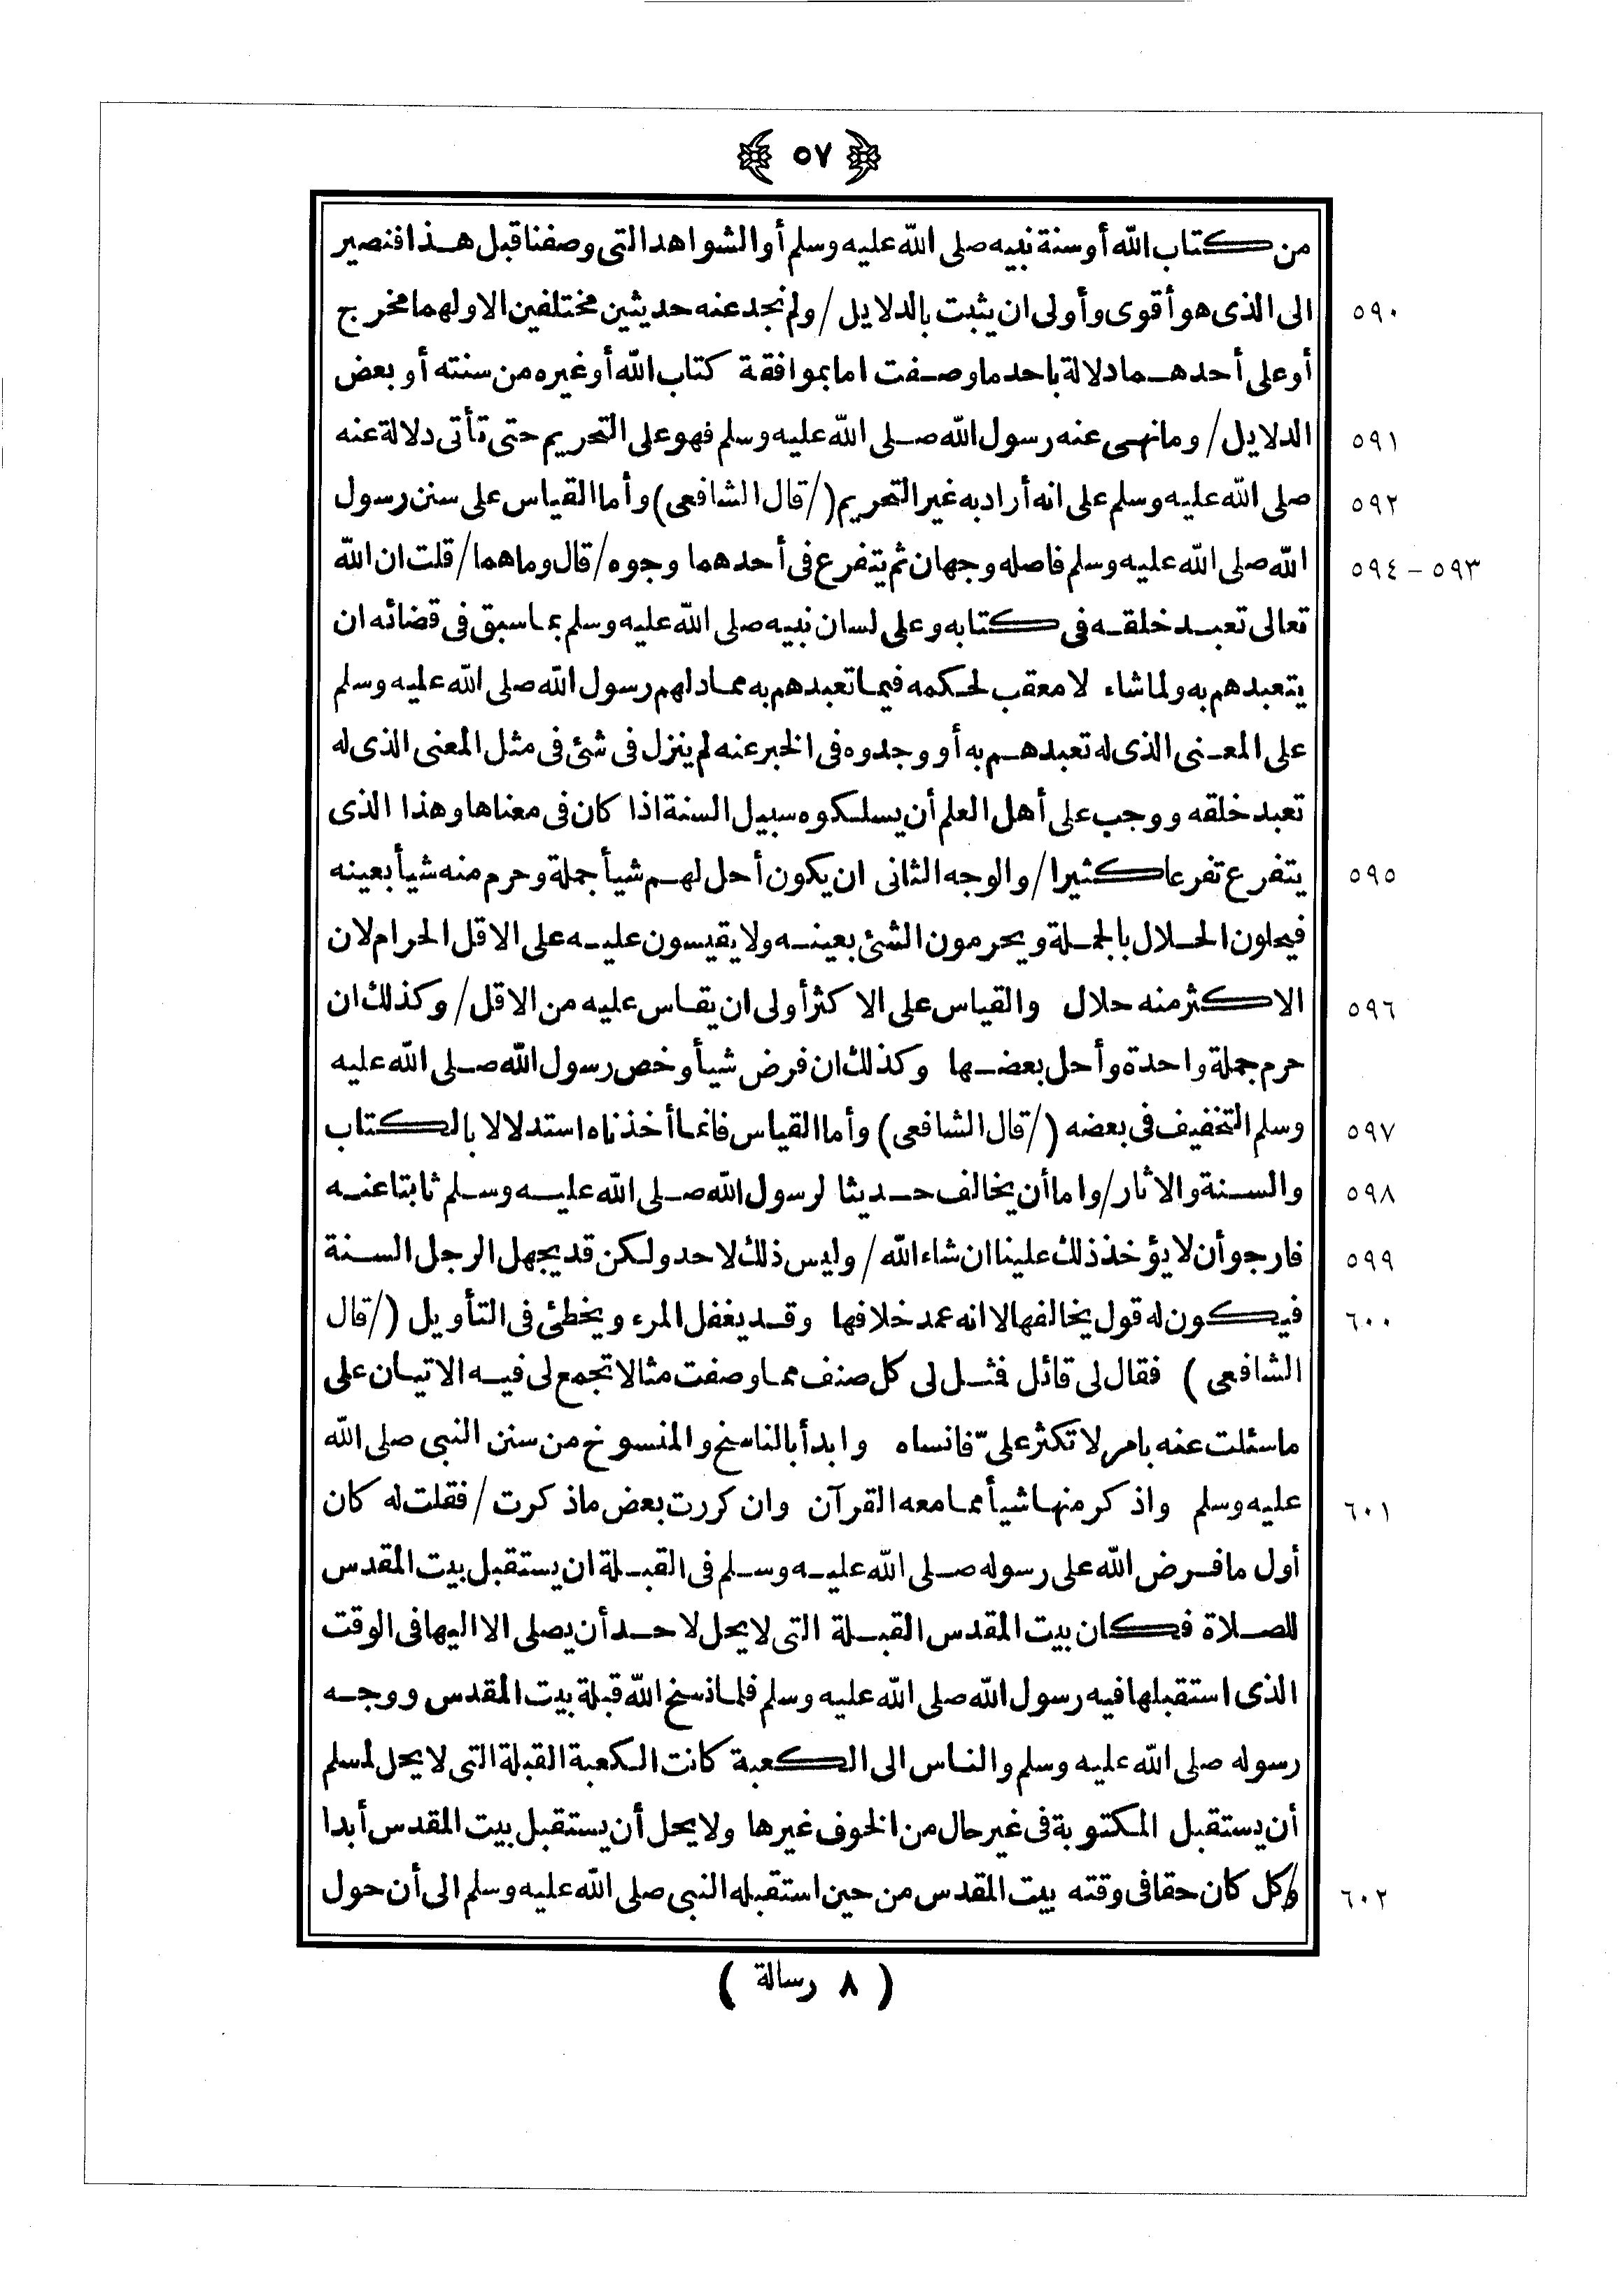 ٥٧
من كتاب الله أو سنة نبيه صلى الله عليه وسلم أو الشواهد التى وصفنا قبل هذا فنصير
٥٩٠ الى الذى هو أقوى وأولى ان يثبت بالدلايل / ولم نجد عنه حديثين مختلفين الا ولهما مخرج
أو على أحدهما دلالة باحد ما وصفت اما بموافقة كتاب الله أو غيره من سنته أو بعض
٥٩١ الدلايل / وما نهى عنه رسول الله صلى الله عليه وسلم فهو على التحريم حتى تأتى دلالة عنه
٥٩٢ صلى الله عليه وسلم على انه أراد به غير التحريم (/ قال الشافعى) وأما القياس على سنن رسول
٥٩٣ - ٥٩٤ الله صلى الله عليه وسلم فاصله وجهان ثم يتفرع فى أحدهما وجوه / قال وما هما / قلت ان الله
تعالى تعبد خلقه فى كتابه وعلى لسان نبيه صلى الله عليه وسلم بما سبق فى قضائه ان
يتعبدهم به ولما شاء لا معقب لحكمه فيما تعبدهم به مما دلهم رسول الله صلى الله عليه وسلم
على المعنى الذى له تعبدهم به أو وجدوه فى الخبر عنه لم ينزل فى شئ فى مثل المعنى الذى له
تعبد خلقه ووجب على أهل العلم أن يسلكوه سبيل السنة اذا كان فى معناها وهذا الذى
٥٩٥ يتفرع تفرعا كثيرا / والوجه الثانى ان يكون أحل لهم شيأ جملة وحرم منه شيأ بعينه
فيحلون الحلال بالجملة ويحرمون الشئ بعينه ولا يقيسون عليه على الاقل الحرام لان
٥٩٦ الاكثر منه حلال والقياس على الاكثر أولى ان يقاس عليه من الاقل / وكذلك ان
حرم جملة واحدة وأحل بعضها وكذلك ان فرض شيأ وخص رسول الله صلى الله عليه
٥٩٧ وسلم التخفيف فى بعضه (/ قال الشافعى) وأما القياس فانما أخذناه استدلالا بالكتاب
٥٩٨ والسنة والاثار / واما أن يخالف حديثا لرسول الله صلى الله عليه وسلم ثابتا عنه
٥٩٩ فارجو أن لا يؤخذ ذلك علينا ان شاء الله / وليس ذلك لاحد ولكن قد يجهل الرجل السنة
٦٠٠ فيكون له قول يخالفها لا انه عمد خلافها وقد يغفل المرء ويخطئ فى التأويل (/ قال
الشافعى) فقال لى قائل فمثل لى كل صنف مما وصفت مثالا تجمع لى فيه الاتيان على
ما سئلت عنه بامر لا تكثر علىّ فانساه وابدأ بالناسخ والمنسوخ من سنن النبى صلى الله
٦٠١ عليه وسلم واذكر منها شيأ مما معه القرآن وان كررت بعض ما ذكرت / فقلت له كان
أول ما فرض الله على رسوله صلى الله عليه وسلم فى القبلة ان يستقبل بيت المقدس
للصلاة فكان بيت المقدس القبلة التى لا يحل لاحد أن يصلى الا اليها فى الوقت
الذى استقبلها فيه رسول الله صلى الله عليه وسلم فلما نسخ الله قبلة بيت المقدس ووجه
رسوله صلى الله عليه وسلم والناس الى الكعبة كانت الكعبة القبلة التى لا يحل لمسلم
أن يستقبل المكتوبة فى غير حال من الخوف غيرها ولا يحل أن يستقبل بيت المقدس أبدا
٦٠٢ / وكل كان حقا فى وقته بيت المقدس من حين استقبله النبى صلى الله عليه وسلم الى أن حول
( ٨ رسالة )